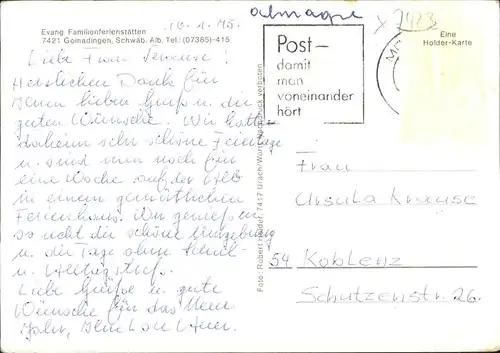 Evang. Familienferienstätten
7421 Gomadingen, Schwäb. Alb, Tel.: (07385)-415
2423
Eine
Holder-Karte
Post-
damit
man
voneinander
hört
Liebe Frau Krause!
Herzlichen Dank für
Ihren lieben Gruß u. die
guten Wünsche. Wir hatten
daheim sehr schöne Feiertage
u. sind nun noch für
eine Woche auf der Alb
in einem gemütlichen
Ferienhaus. Wir genießen
so recht die schöne Umgebung
u. die Tage ohne Schul-
u. Alltagsstreß.
Liebe Grüße u. gute
Wünsche für das Neue
Jahr, Ihre
Foto: Robert Holder, 7417 Urach/Württ. Nachdruck verboten
Frau
Ursula Krause
54 Koblenz
Schützenstr. 26.